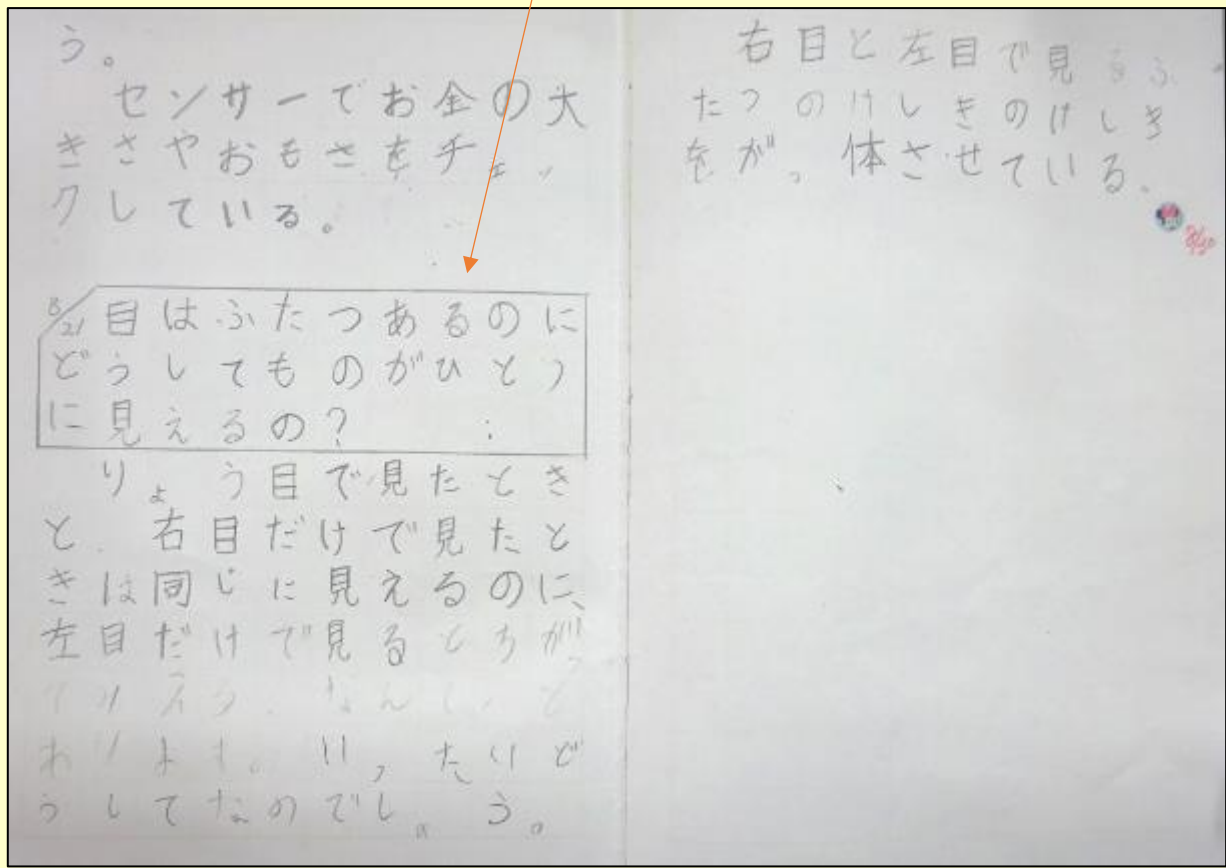 う。
センサーでお金の大
きさやおもさをチェッ
クしている。
8/21 目はふたつあるのに
どうしてものがひとつ
に見えるの?
りょう目で見たとき
と、右目だけで見たと
きは同じに見えるのに、
左目だけで見るとちがっ
て
いったいど
うしてなのでしょう。
右目と左目で見るふ
たつのけしきのけしき
をがっ体させている。